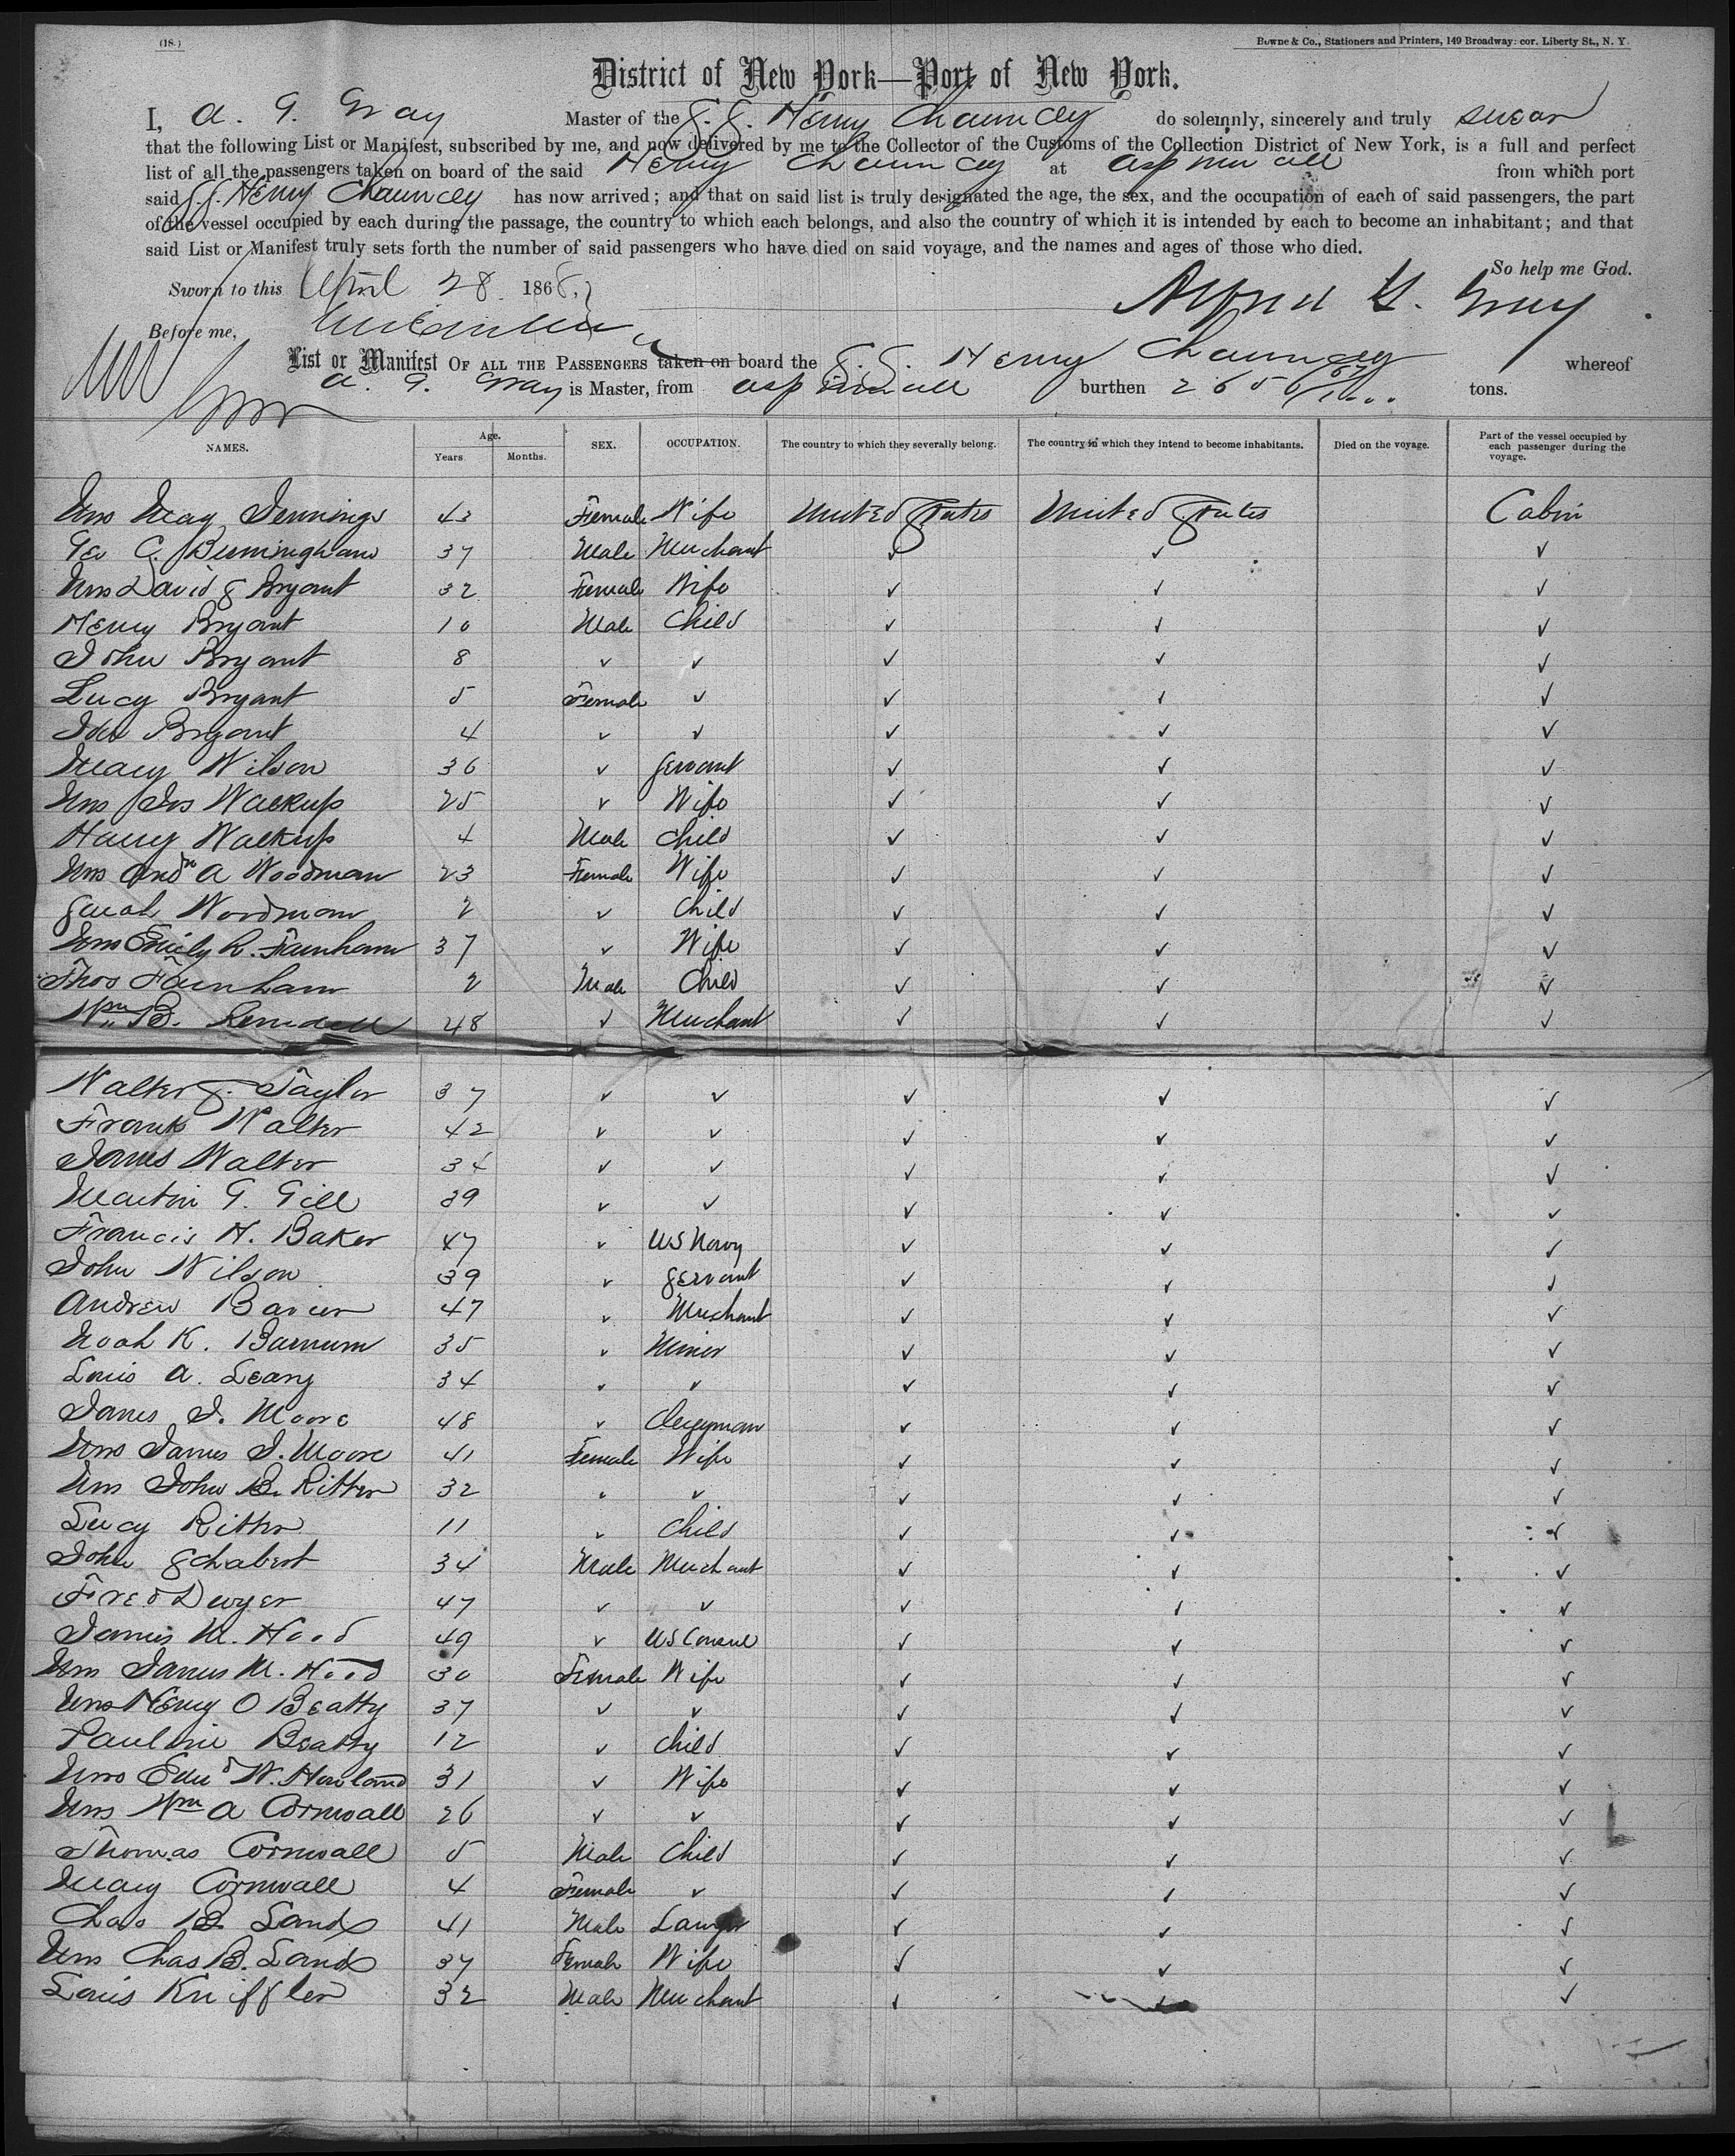 (18.)
Bowne & Co., Stationers and Printers, 149 Broadway: cor. Liberty St., N. Y.
District of New York—Port of New York.
I, A. G. Gray Master of the S. S. Henry Chauncey do solemnly, sincerely and truly swear
that the following List or Manifest, subscribed by me, and now delivered by me to the Collector of the Customs of the Collection District of New York, is a full and perfect
list of all the passengers taken on board of the said Henry Chauncey at Aspinwall from which port
said S.S. Henry Chauncey has now arrived; and that on said list is truly designated the age, the sex, and the occupation of each of said passengers, the part
of the vessel occupied by each during the passage, the country to which each belongs, and also the country of which it is intended by each to become an inhabitant; and that
said List or Manifest truly sets forth the number of said passengers who have died on said voyage, and the names and ages of those who died.
So help me God.
Sworn to this April 28 1868,
Alfred G. Gray
Before me,
List or Manifest OF ALL THE PASSENGERS taken on board the S. S. Henry Chauncey whereof
A. G. Gray is Master, from Aspinwall burthen 2656 tons.
NAMES. Age. Years Months. SEX. OCCUPATION. The country to which they severally belong. The country in which they intend to become inhabitants. Died on the voyage. Part of the vessel occupied by each passenger during the voyage.
Mrs May Jennings 43 Female Wife United States United States Cabin
Geo C. Bermingham 37 Male Merchant ✓ ✓ ✓
Mrs David S Bryant 32 Female Wife ✓ ✓ ✓
Henry Bryant 10 Male Child ✓ ✓ ✓
John Bryant 8 ✓ ✓ ✓ ✓ ✓
Lucy Bryant 5 Female ✓ ✓ ✓ ✓
Ida Bryant 4 ✓ ✓ ✓ ✓ ✓
Mary Wilson 36 ✓ Servant ✓ ✓ ✓
Mrs Jos Walkup 25 ✓ Wife ✓ ✓ ✓
Harry Walkup 4 Male Child ✓ ✓ ✓
Mrs Andw A Woodman 23 Female Wife ✓ ✓ ✓
Sarah Woodman 2 ✓ Child ✓ ✓ ✓
Mrs Emily R. Farnham 37 ✓ Wife ✓ ✓ ✓
Thos Farnham 2 Male Child ✓ ✓ ✓
Wm B. 48 ✓ Merchant ✓ ✓ ✓
Walter S. Taylor 37 ✓ ✓ ✓ ✓ ✓
Frank Walter 42 ✓ ✓ ✓ ✓ ✓
James Walter 34 ✓ ✓ ✓ ✓ ✓
Martin G. Gill 39 ✓ ✓ ✓ ✓ ✓
Francis H. Baker 47 ✓ US Navy ✓ ✓ ✓
John Wilson 39 ✓ Servant ✓ ✓ ✓
Andrew 47 ✓ Merchant ✓ ✓ ✓
Noah K. Barnum 35 ✓ Miner ✓ ✓ ✓
Louis A. Leary 34 ✓ ✓ ✓ ✓ ✓
James I. Moore 48 ✓ Clergyman ✓ ✓ ✓
Mrs James I. Moore 41 Female Wife ✓ ✓ ✓
Mrs John B. Ritter 32 ✓ ✓ ✓ ✓ ✓
Lucy Ritter 11 ✓ Child ✓ ✓ ✓
John Schabert 34 Male Merchant ✓ ✓ ✓
Fred Dwyer 47 ✓ ✓ ✓ ✓ ✓
James M. Hood 49 ✓ US Consul ✓ ✓ ✓
Mrs James M. Hood 30 Female Wife ✓ ✓ ✓
Mrs Henry O Beatty 37 ✓ ✓ ✓ ✓ ✓
Pauline Beatty 12 ✓ Child ✓ ✓ ✓
Mrs Edwd W. Howland 31 ✓ Wife ✓ ✓ ✓
Mrs Wm A Cornwall 26 ✓ ✓ ✓ ✓ ✓
Thomas Cornwall 5 Male Child ✓ ✓ ✓
Mary Cornwall 4 Female ✓ ✓ ✓ ✓
Chas B. Sands 41 Male Lawyer ✓ ✓ ✓
Mrs Chas B. Sands 37 Female Wife ✓ ✓ ✓
Louis Kniffler 32 Male Merchant ✓ ✓ ✓